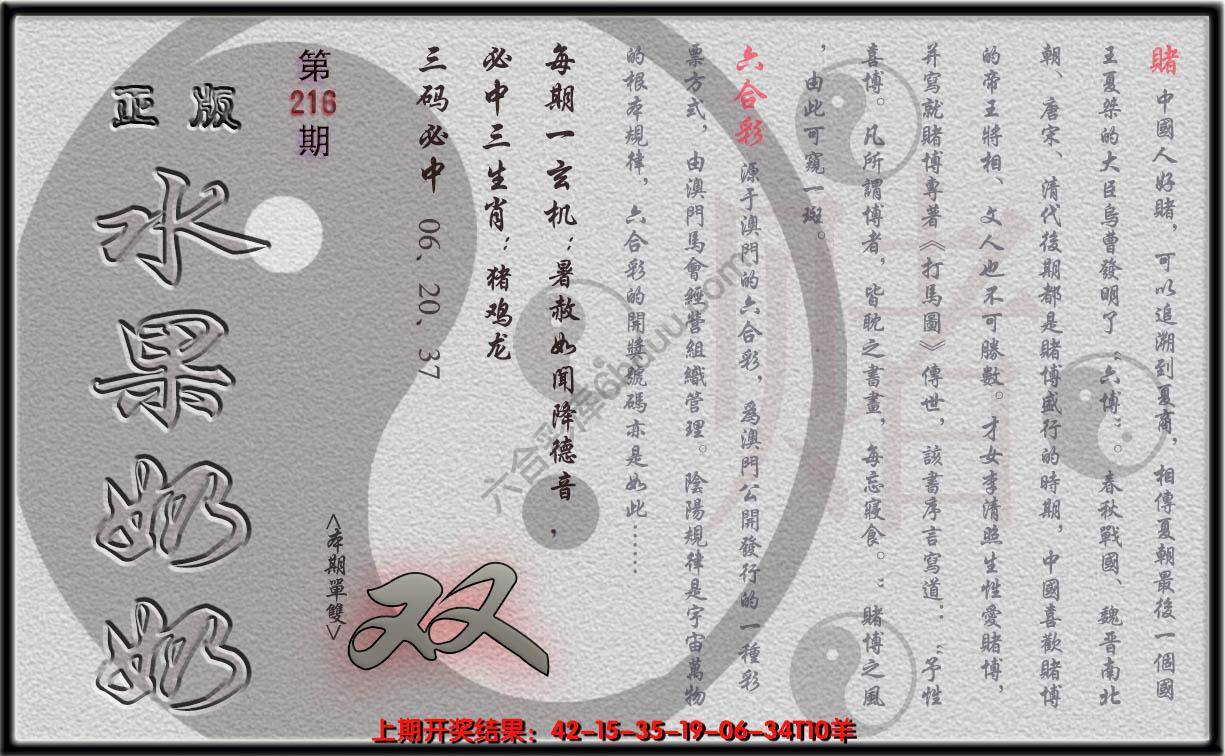 賭 中國人好賭，可以追溯到夏商，相傳夏朝最後一個國
王夏桀的大臣烏曹發明了“六博”。春秋戰國、魏晋南北
朝、唐宋、清代後期都是賭博盛行的時期，中國喜歡賭博
的帝王將相、文人也不可勝數。才女李清照生性愛賭博，
并寫就賭博專著《打馬圖》傳世，該書序言寫道：“予性
喜博。凡所謂博者，皆耽之書畫，每忘寢食。”賭博之風
，由此可窺一斑。
六合彩 源于澳門的六合彩，爲澳門公開發行的一種彩
票方式，由澳門馬會經營組織管理。陰陽規律是宇宙萬物
的根本規律，六合彩的開獎號碼亦是如此……
每期一玄机：暑赦如闻降德音，
必中三生肖：猪鸡龙
三码必中 06、20、37
第
216
期
正版
水果奶奶
<本期單雙>
双
上期开奖结果：42-15-35-19-06-34T10羊